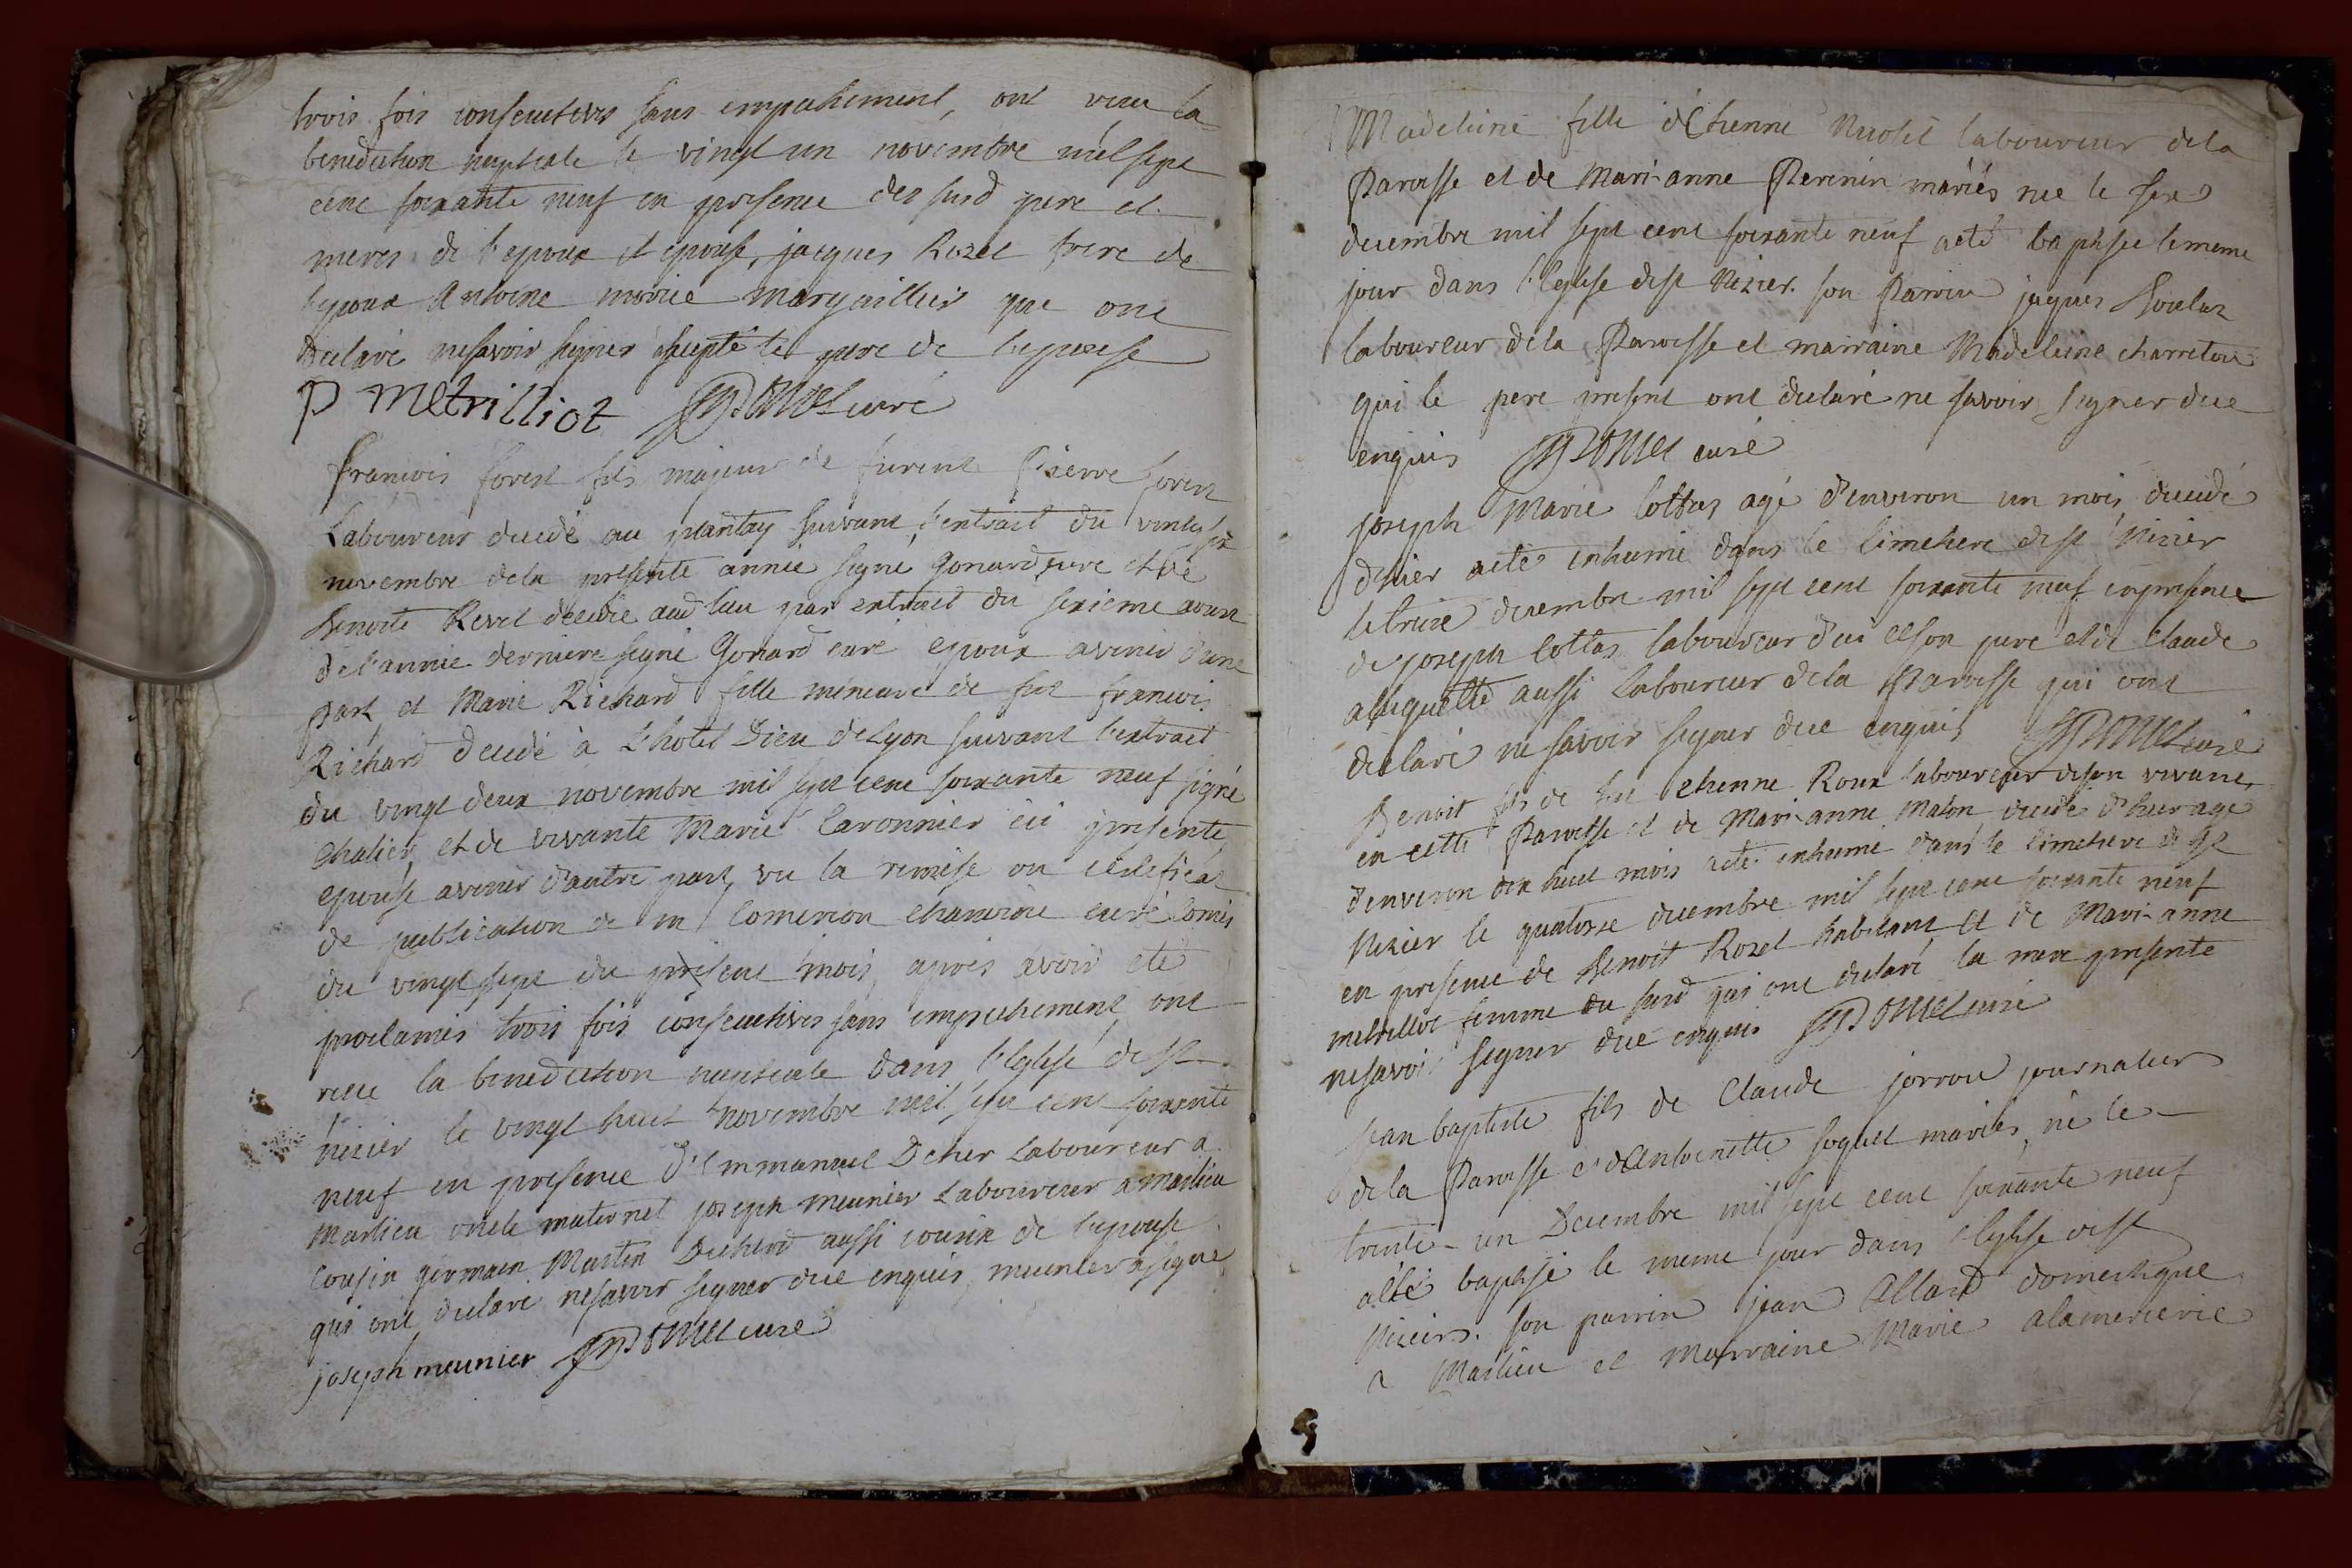 trois fois consecutives sans empechement, ont recu la
benediction nuptiale le vingt un novembre mil sept
cent soixante neuf en presence des susd pere et
meres de l'epoux et epouse, jacques Rozet frere de
l'epoux Antoine marguillier que ont
declaré ne savoir signer excepté le pere de l'epouse
P metrilliot curé
francois forest fils majeur de furent Pierre forest
Laboureur decedé au plantay suivant l'extrait du vingt six
novembre dela presente année signé Gonard curé et de
Benoite Revel decedée aud lieu par extrait du sixieme avril
de l'année derniere signé Gonard curé epoux avenir d'une
part, et Marie Richard fille mineure de fut francois
Richard decedé à L'hotel Dieu de Lyon suivant l'extrait
du vingt deux novembre mil sept cent soixante neuf signé
Chalier, et de vivante Marie Caronnier ici presente
epouse avenir d'autre part, vu la remise ou certificat
de publication de m chanoine curé
du vingt sept du present mois, apres avoir eté
proclamés trois fois consecutives sans empechement ont
recu la benediction nuptiale dans l'eglise de st
nizier le vingt huit novembre mil sept cent soixante
neuf en presence d'Emmanuel Decher Laboureur a
Marlieu oncle maternel joseph meunier Laboureur a Marlieu
Cousin germain Martin Richard aussi cousin de l'epouse
qui ont declaré ne savoir signer de ce enquis, meunier a signé
joseph meunier curé
Madeleine fille d'Etienne Nicolet laboureur dela
Paroisse et de Mari-anne Perinin mariés nee le six
decembre mil sept cent soixante neuf a eté baptisee le meme
jour dans l'Eglise de st Nizier. son Parrin jaques
laboureur dela Paroisse et marraine Madeleine charreton
qui le pere present ont declaré ne savoir signer de ce
enquis curé
joseph Marie lottas agé d'environ un mois, decedé
d'hier a eté inhumé dans le Cimetiere de st Nizier
le treize decembre mil sept cent soixante neuf en presence
de joseph lottas laboureur d'ici et son pere et de Claude
aussi Laboureur dela Paroisse qui ont
declaré ne savoir signer de ce enquis curé
Benoit fils de fut etienne Roux laboureur de son vivant,
en cette Paroisse et de Mari-anne Maton decedé d'hier agé
d'environ dix huit mois a eté inhumé dans le Cimetiere de st
Nizier le quatorse decembre mil sept cent soixante neuf
en presence de Benoit Rozet habitant et de Mari-anne
metrillot femme du susd qui ont declaré la mere presente
ne savoir signer de ce enquis curé
jean baptiste fils de Claude jorrou journalier
dela Paroisse et d'Antoinette soquet mariés, né le
trente-un Decembre mil sept cent soixante neuf
a eté baptisé le meme jour dans l'Eglise de st
Niziers. son parrin jean Allard domestique
a Marlieu et Marraine Marie alamercerie